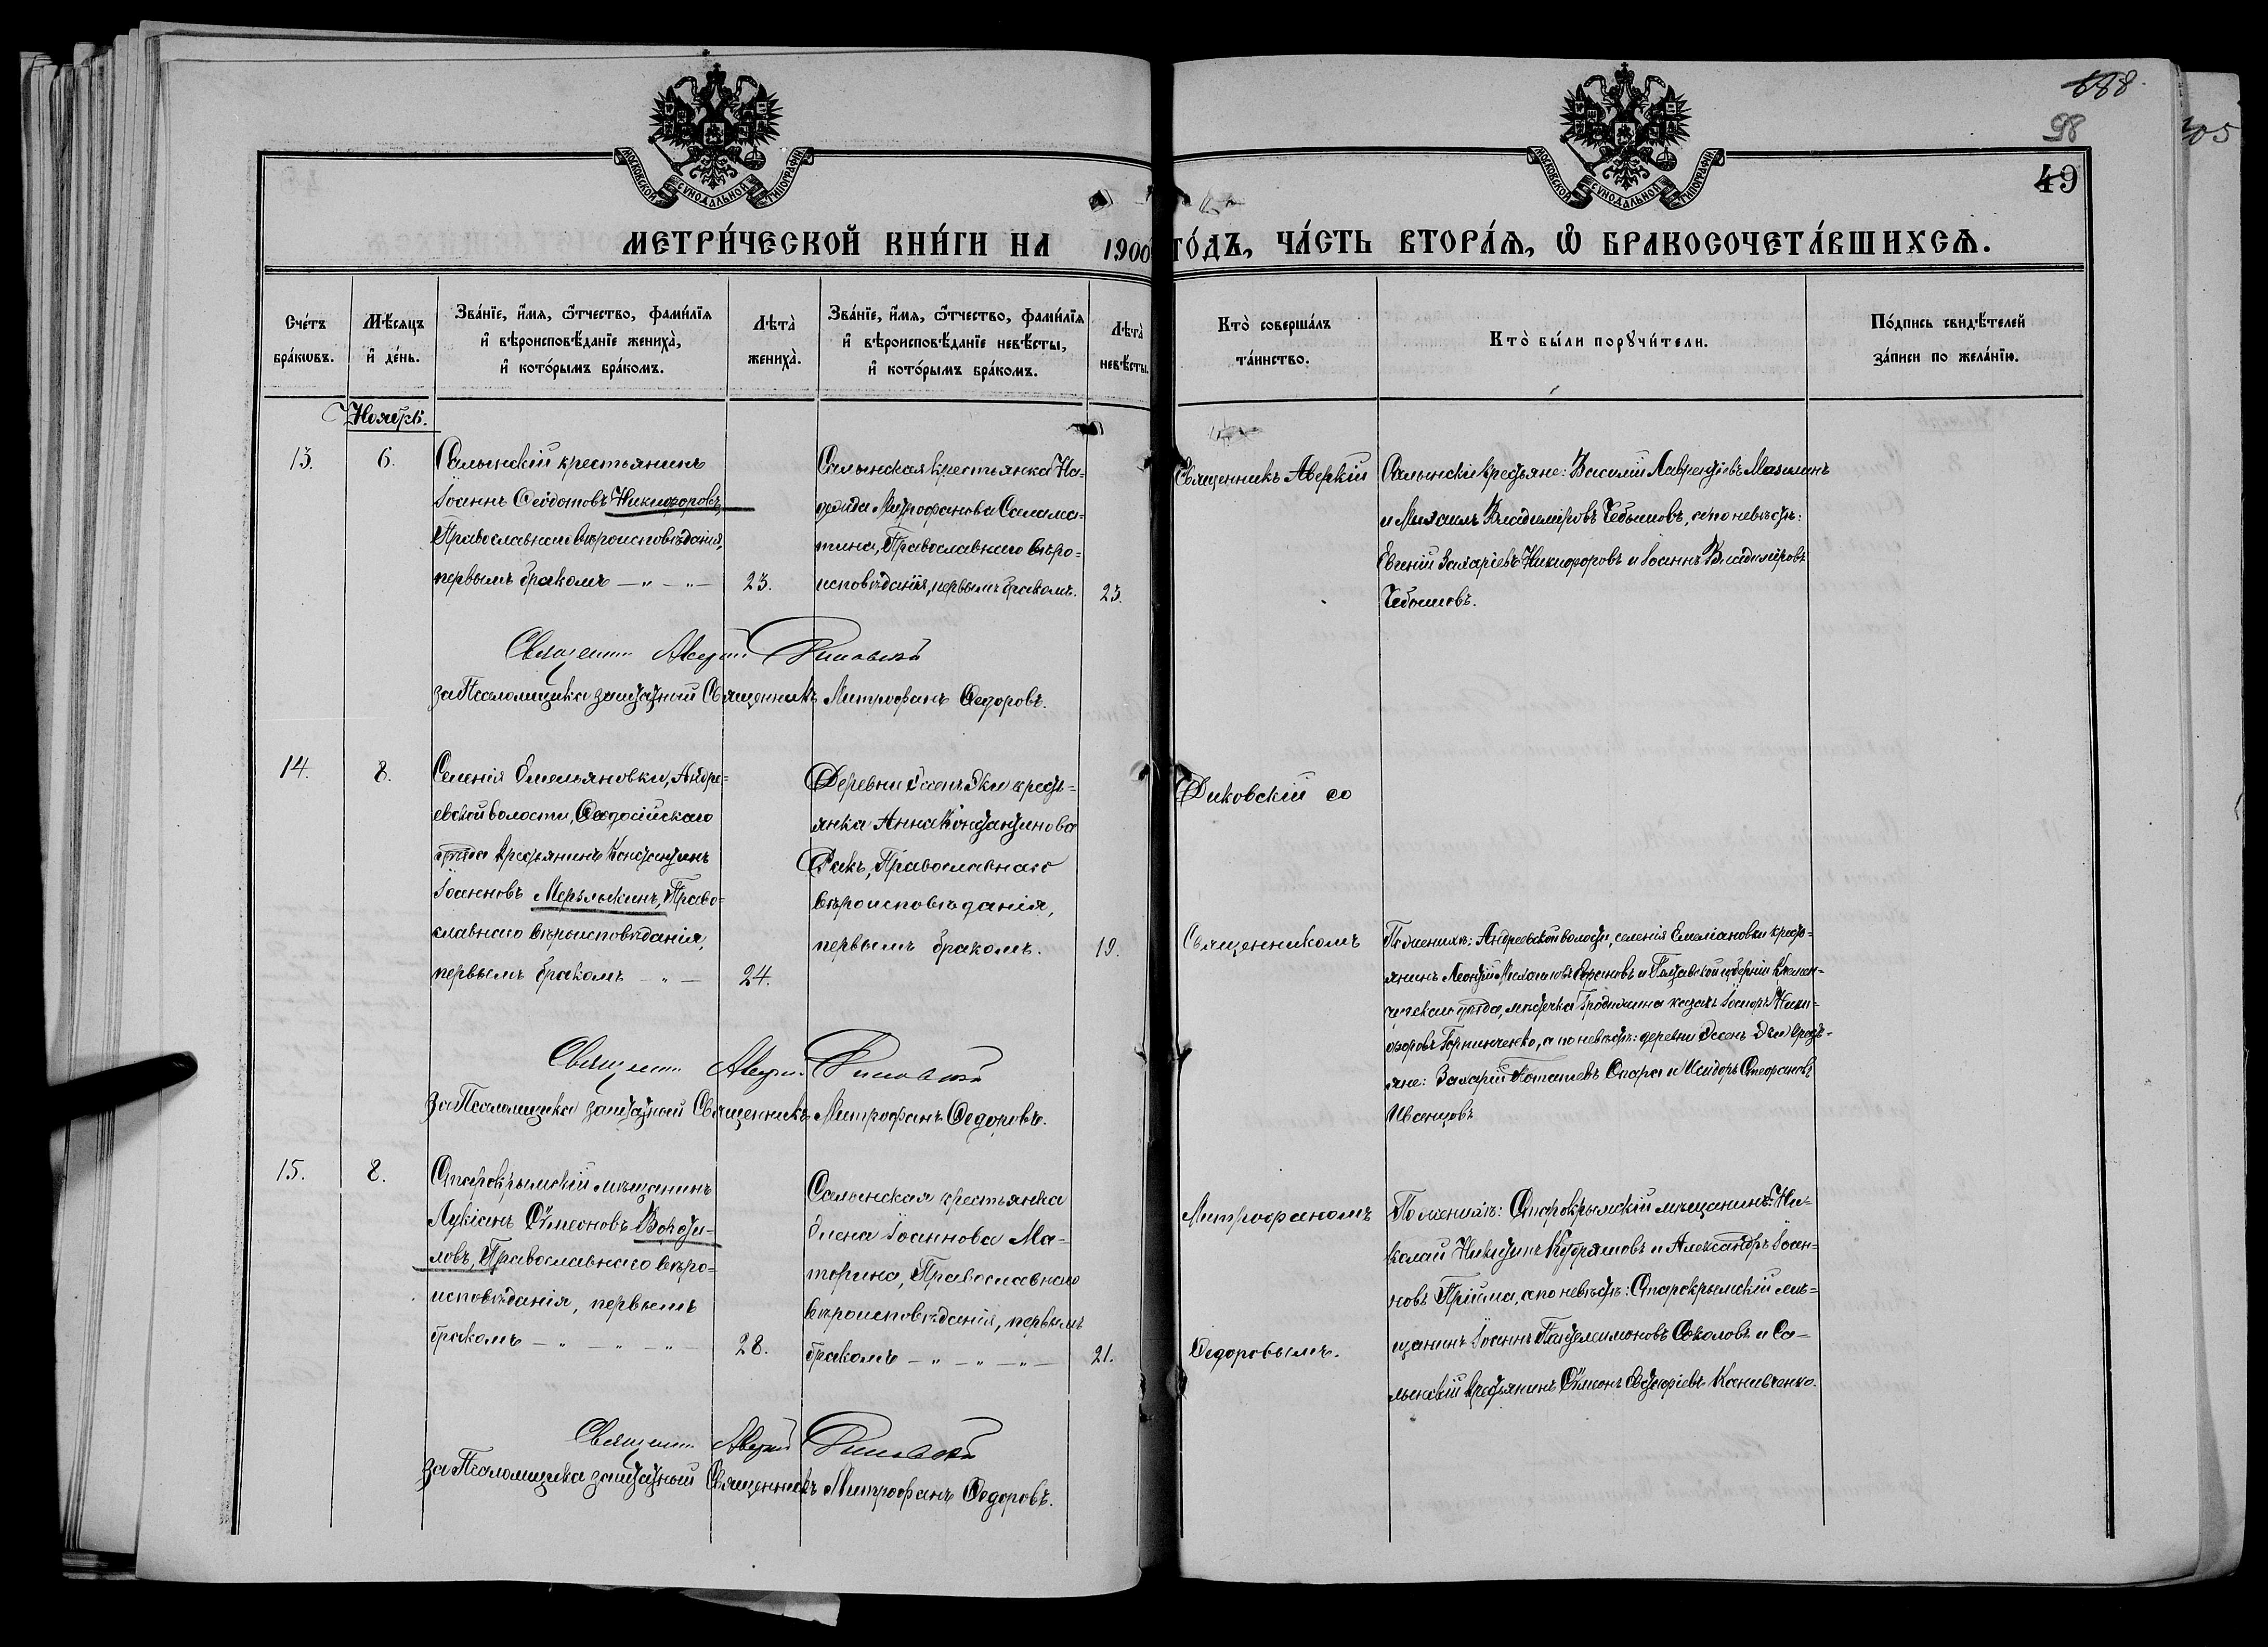 688
98
305
49
МОСКОВСКОЙ СУНОДАЛЬНОЙ ТИПОГРАФІИ
МОСКОВСКОЙ СУНОДАЛЬНОЙ ТИПОГРАФІИ
МЕТРИ́ЧЕСКОЙ КНИ́ГИ НА 1900 ГО́ДЪ, ЧА́СТЬ ВТОРА́Я, Ѽ БРАКОСОЧЕТА́ВШИХСЯ.
Сче́тъ
бра́кωвъ.
Мѣ́сяцъ
и҆ де́нь.
Зва́нїе, и҆́мя, ѻ҆́тчество, фами́лїя
и҆ вѣроисповѣ́данїе жениха̀,
и҆ кото́рымъ бра́комъ.
Лѣта̀
жениха̀.
Зва́нїе, и҆́мя, ѻ҆́тчество, фами́лїя
и҆ вѣроисповѣ́данїе невѣ́сты,
и҆ кото́рымъ бра́комъ.
Лѣта̀
невѣ́сты.
Кто̀ соверша́лъ
та́инство.
Кто̀ бы́ли порꙋчи́тели.
По́дпись свидѣ́телей
за́писи по жела́нїю.
Ноябрь.
13.
6.
Салынскій крестьянинъ
Іоаннъ Ѳеодотовъ Никифоровъ,
Православнаго вѣроисповѣданія,
первымъ бракомъ — „ — „ —
23.
Салынская крестьянка На-
дежда Митрофанова Салама-
тина, Православнаго вѣро-
исповѣданія, первымъ бракомъ.
23.
Священникъ Аверкій
Салынскіе крестьяне: Василій Лаврентіевъ
и Михаилъ Владиміровъ Чебышовъ, а по невѣстѣ:
Евгеній Захаріевъ Никифоровъ и Іоаннъ Владиміровъ
Чебышовъ.
Священникъ Аверкій Диковскій
за Псаломщика заштатный Священникъ Митрофанъ Ѳедоровъ.
14.
8.
Селенія Емельяновки, Андре-
евской волости, Ѳеодосійскаго
уѣзда крестьянинъ Константинъ
Іоанновъ Мерзлыкинъ, Право-
славнаго вѣроисповѣданія,
первымъ бракомъ — „ —
24.
Деревни крестъ-
янка Анна Константинова
Православнаго
вѣроисповѣданія,
первымъ бракомъ.
19.
Диковскій со
Священникомъ
По женихѣ: Андреевской волости, селенія Емеліановки кресть-
янинъ Леонтій Михаиловъ и Полтавской губерніи Кремен-
чугскаго уѣзда, мѣстечка казакъ Ники-
форовъ Горпинченко, а по невѣстѣ: деревни крестъ-
яне: Захарій Потапіевъ Опара и Исидоръ Стефановъ
Иванцовъ
Священникъ Аверкій Диковскій
За Псаломщика заштатный Священникъ Митрофанъ Ѳедоровъ.
15.
8.
Старокрымскій мѣщанинъ
Лукіанъ Сѵмеоновъ
ловъ, Православнаго вѣро-
исповѣданія, первымъ
бракомъ — „ — „ — „ —
28.
Салынская крестьянка
Елена Іоаннова Ма-
торина, Православнаго
вѣроисповѣданія, первымъ
бракомъ — „ — „ — „ —
21.
Митрофаномъ
Ѳедоровымъ.
По женихѣ: Старокрымскій мѣщанинъ: Ни-
колай Никитинъ Кудряшовъ и Александръ Іоан-
новъ Пріима, а по невѣстѣ: Старокрымскій мѣ-
щанинъ Іоаннъ Пантелеимоновъ Соколовъ и Са-
лынскій крестьянинъ Сѵмеонъ Канивченко.
Священникъ Аверкій Диковскій
За Псаломщика заштатный Священникъ Митрофанъ Ѳедоровъ.